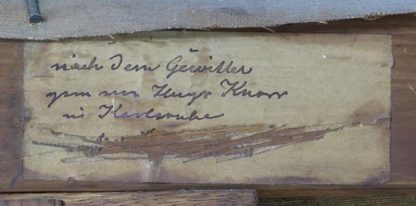 nach dem Gewitter
gem von Hugo Knorr
in Karlsruhe